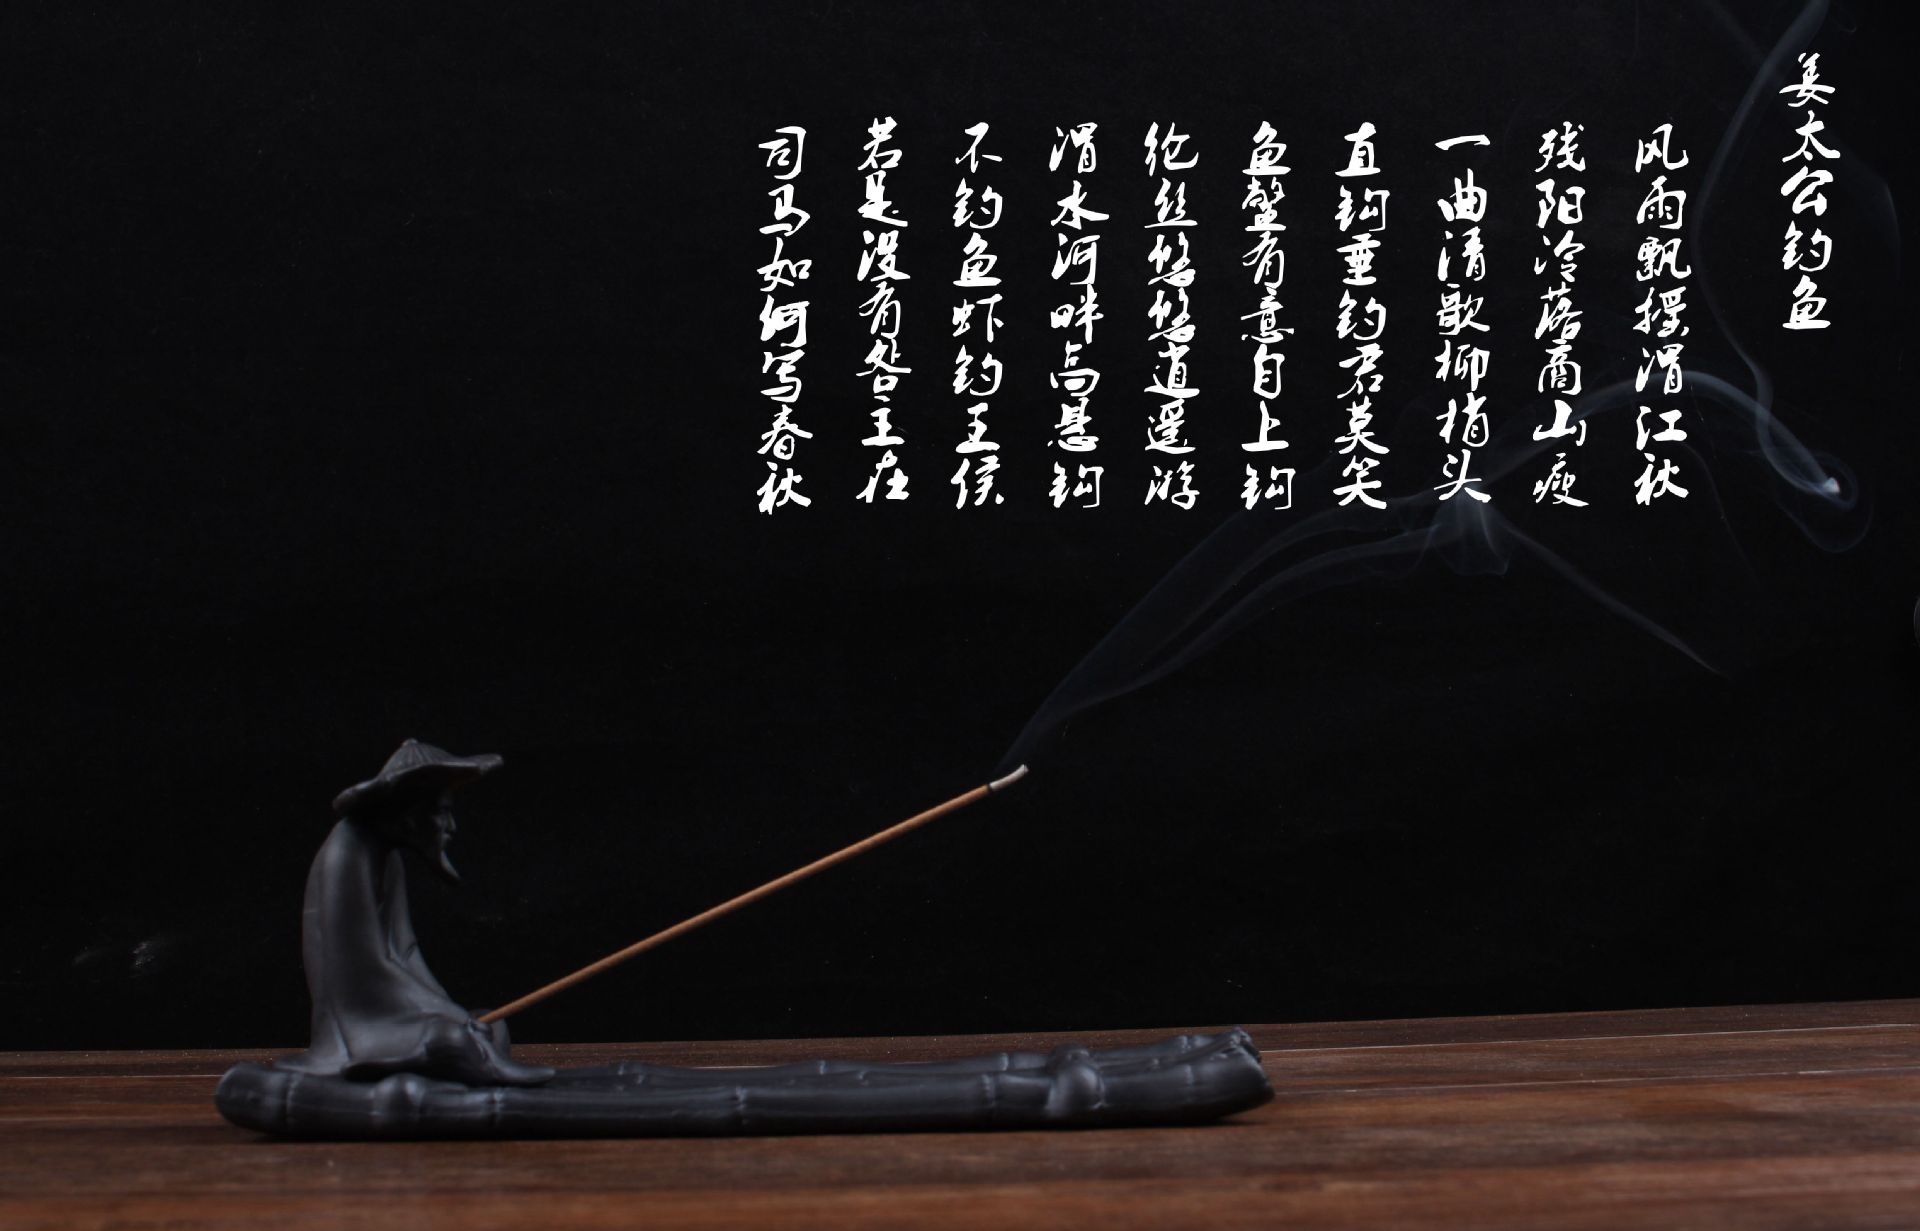 姜太公钓鱼
风雨飘摇渭江秋
残阳冷落商山瘦
一曲清歌柳梢头
直钩垂钓君莫笑
鱼蟹有意自上钩
纶丝悠悠逍遥游
渭水河畔高悬钩
不钓鱼虾钓王侯
若是没有咎主在
司马如何写春秋